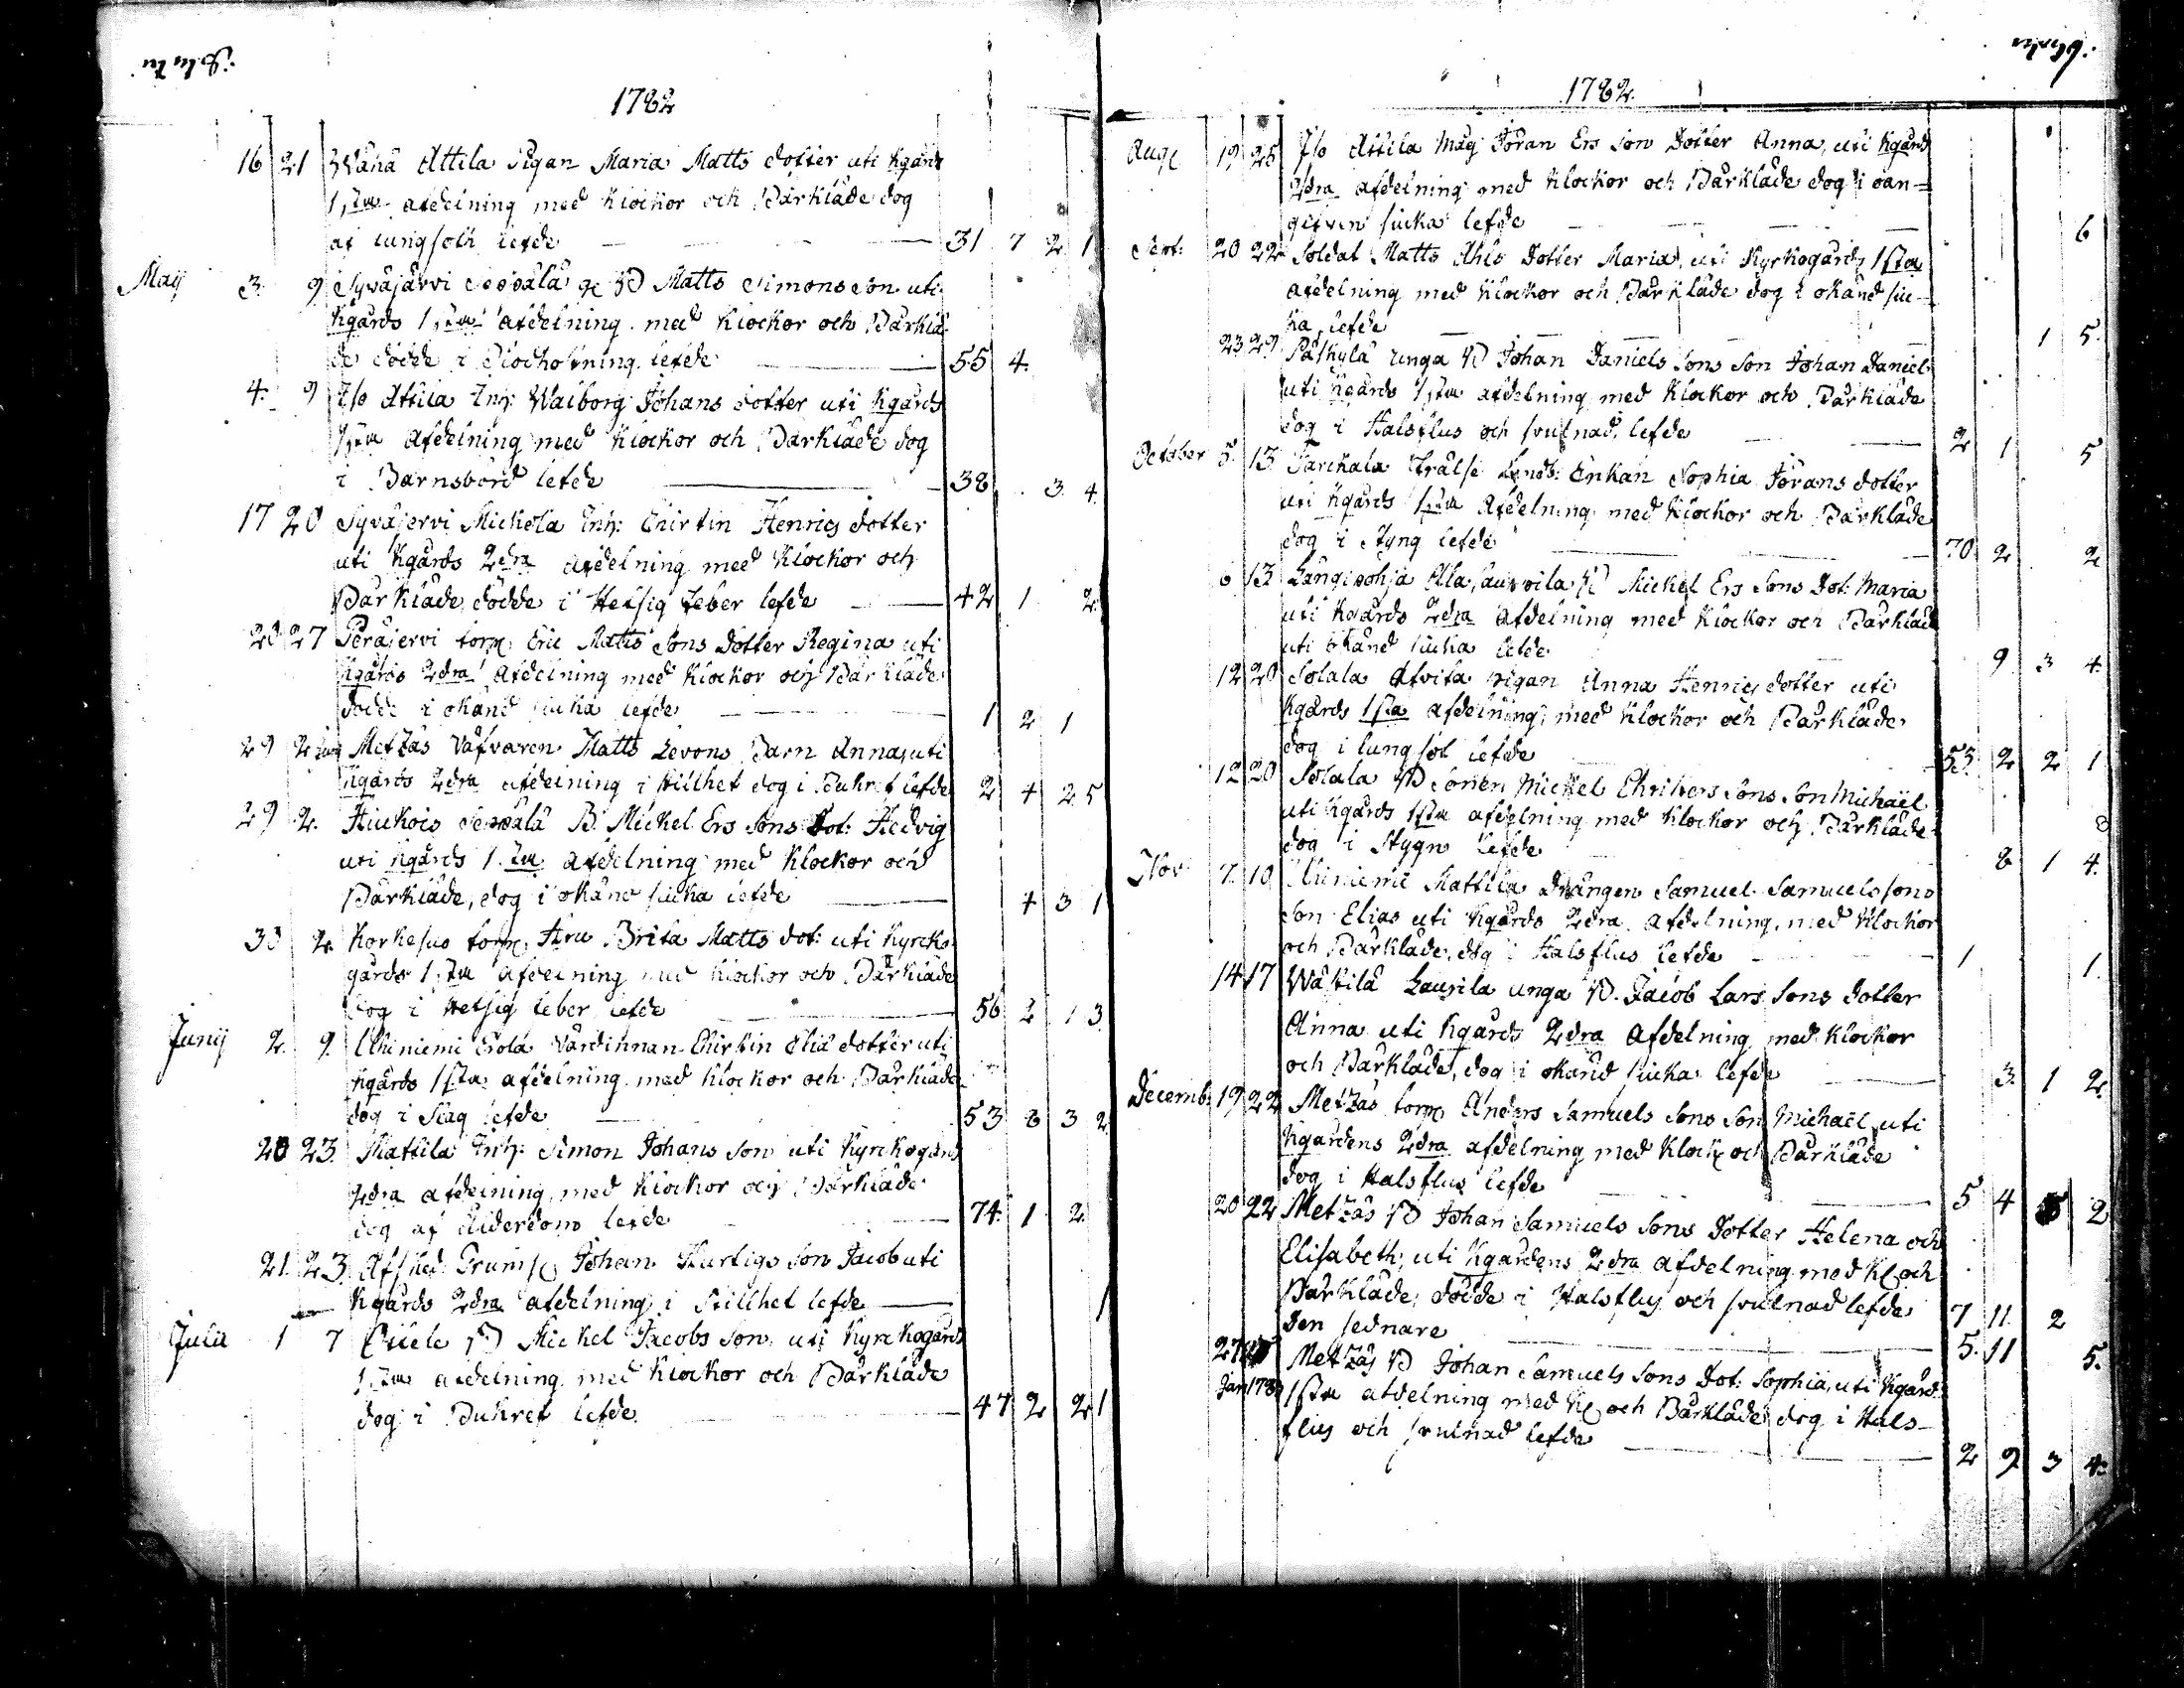 1782
16 21 Wähä Attila Pigan Maria Matts dotter uti Kgårds
1sta afdelning med Klockor och Bårkläde dog
af lungsoth lefde 31 7 2 1
Maij 3. 9 Syväjärvi Seppälä gl B Matts Simons Son uti
Kgårds 1sta afdelning med Klockor och Bårklä-
de dödde i lefde 55 4
4. 9 Iso Attila Inh: Walborg Johans dotter uti Kgårds
1sta afdelning med Klockor och Bårkläde dog
i Barnsbörd lefde 38 3 4
17 20 Syväjervi Mickola Inh: Chirstin Henrics dotter
uti Kgårds 2dra afdelning med Klockor och
Bårkläde, dödde i Hetsig feber lefde 42 1 2
27 Peräjervi torp: Eric Matts Sons dotter Regina uti
Kgårds 2dra afdelning med Klockor och Bårkläde
dödde i okänd siuka lefde 1 2 1
29 2 Metzäs Matts Levons Barn Anna, uti
Kgårds 2dra afdelning i stillhet dog i Buhref lefde 2 4 2 5
29 2. Hiukois Seppälä B. Mickel Ers Sons Dot: Hedvig
uti Kgårds 1sta afdelning med Klockor och
Bårkläde, dog i okänd siuka lefde 4 3 1
30 2 Korkesuo torp: Hru Brita Matts dot: uti Kyrcko
gårds 1sta afdelning med Klockor och Bårkläde
dog i Hetsig feber lefde 56 2 1 3
Junij 2. 9. Uhiniemi Erola Värdinnan Chirstin Eliæ dotter uti
Kgårds 1sta afdelning med Klockor och Bårkläde
dog i Slag lefde 53 8 3 2
20 23. Mattila Inh: Simon Johans Son uti Kyrckogårds
2dra afdelning med Klockor och Bårkläde
dog af ålderdom lefde 74. 1 2
21. 23 Afsked: Johan Hurtigs Son Jacob uti
Kgårds 2dra afdelning i Stillhet lefde 1
Julii 1 7 B Mickel Jacobs Son uti Kyrckogårds
1sta afdelning med Klockor och Bårkläde
dog i Buhref lefde 47 2 2 1
1782
Aug: 19 25 Iso Attila Måg Jöran Ers Son Dotter Anna, uti Kgårds
2dra afdelning med Klockor och Bårkläde dog i oan-
gifven siuka lefde 6
Sept: 20 22 Soldat Matts Ahls Dotter Maria, uti Kyrkogårds 1sta
afdelning med Klockor och Bårkläde dog i okänd siu-
ka, lefde 1 5
23 29 Påskylä unga B Johan Daniels Sons Son Johan Daniel
uti Kgårds 1sta afdelning med Klockor och Bårkläde
dog i Halsflus och svulnad, lefde 2 1 5
October 5. 13 Tarckala Frälse Enkan Sophia Jörans dotter
uti Kgårds 1sta Afdelning med Klockor och Bårkläde
dog i Styng lefde 70 2 2
6 13 Långipohja Mickel Ers Sons Dot: Maria
uti Kgårds 2dra Afdelning med Klockor och Bårkläde
uti okänd siuka lefde 9 3 4
12 20 Solala Atvita Pigan Anna Henrics dotter uti
Kgårds 1sta afdelning, med Klockor och Bårkläde
dog i lungsot lefde 55 2 2 1
12 20 Solala B Sonen Mickel Sons Son Michaël
uti Kgårds 1sta afdelning med Klockor och Bårkläde
dog i Stygn lefde 8 1 4.
Nov: 7. 10 Uhiniemi Mattila Drängen Samuel Samuelssons
Son Elias uti Kgårds 2dra afdelning, med Klockor
och Bårkläde, dog i Halsflus lefde 1 1
14 17 Wäkilä Laurila unga B. Jacob Lars Sons dotter
Anna uti Kgårds 2dra Afdelning med Klockor
och Bårkläde, dog i okänd siuka lefde 3. 1 2
Decemb: 19 22 Metzäs torp: Anders Samuels Sons Son Michaël uti
Kgårdens 2dra afdelning med Klock och Bårkläde
dog i Halsflus lefde 5 4 2
20 22 Metzäs B Johan Samuels Sons Dotter Helena och
Elisabeth; uti Kgårdens 2dra afdelning med Kl och
Bårkläde; dödde i Halsflus och svulnad lefde 7 11 2
Den sednare 5. 11 5.
27 Metzäs B Johan Samuels Sons Dot: Sophia, uti Kgårds
Jan: 1sta afdelning med Kl och Bårkläde dog i Hals-
flus och svulnad lefde 2 9 3 4